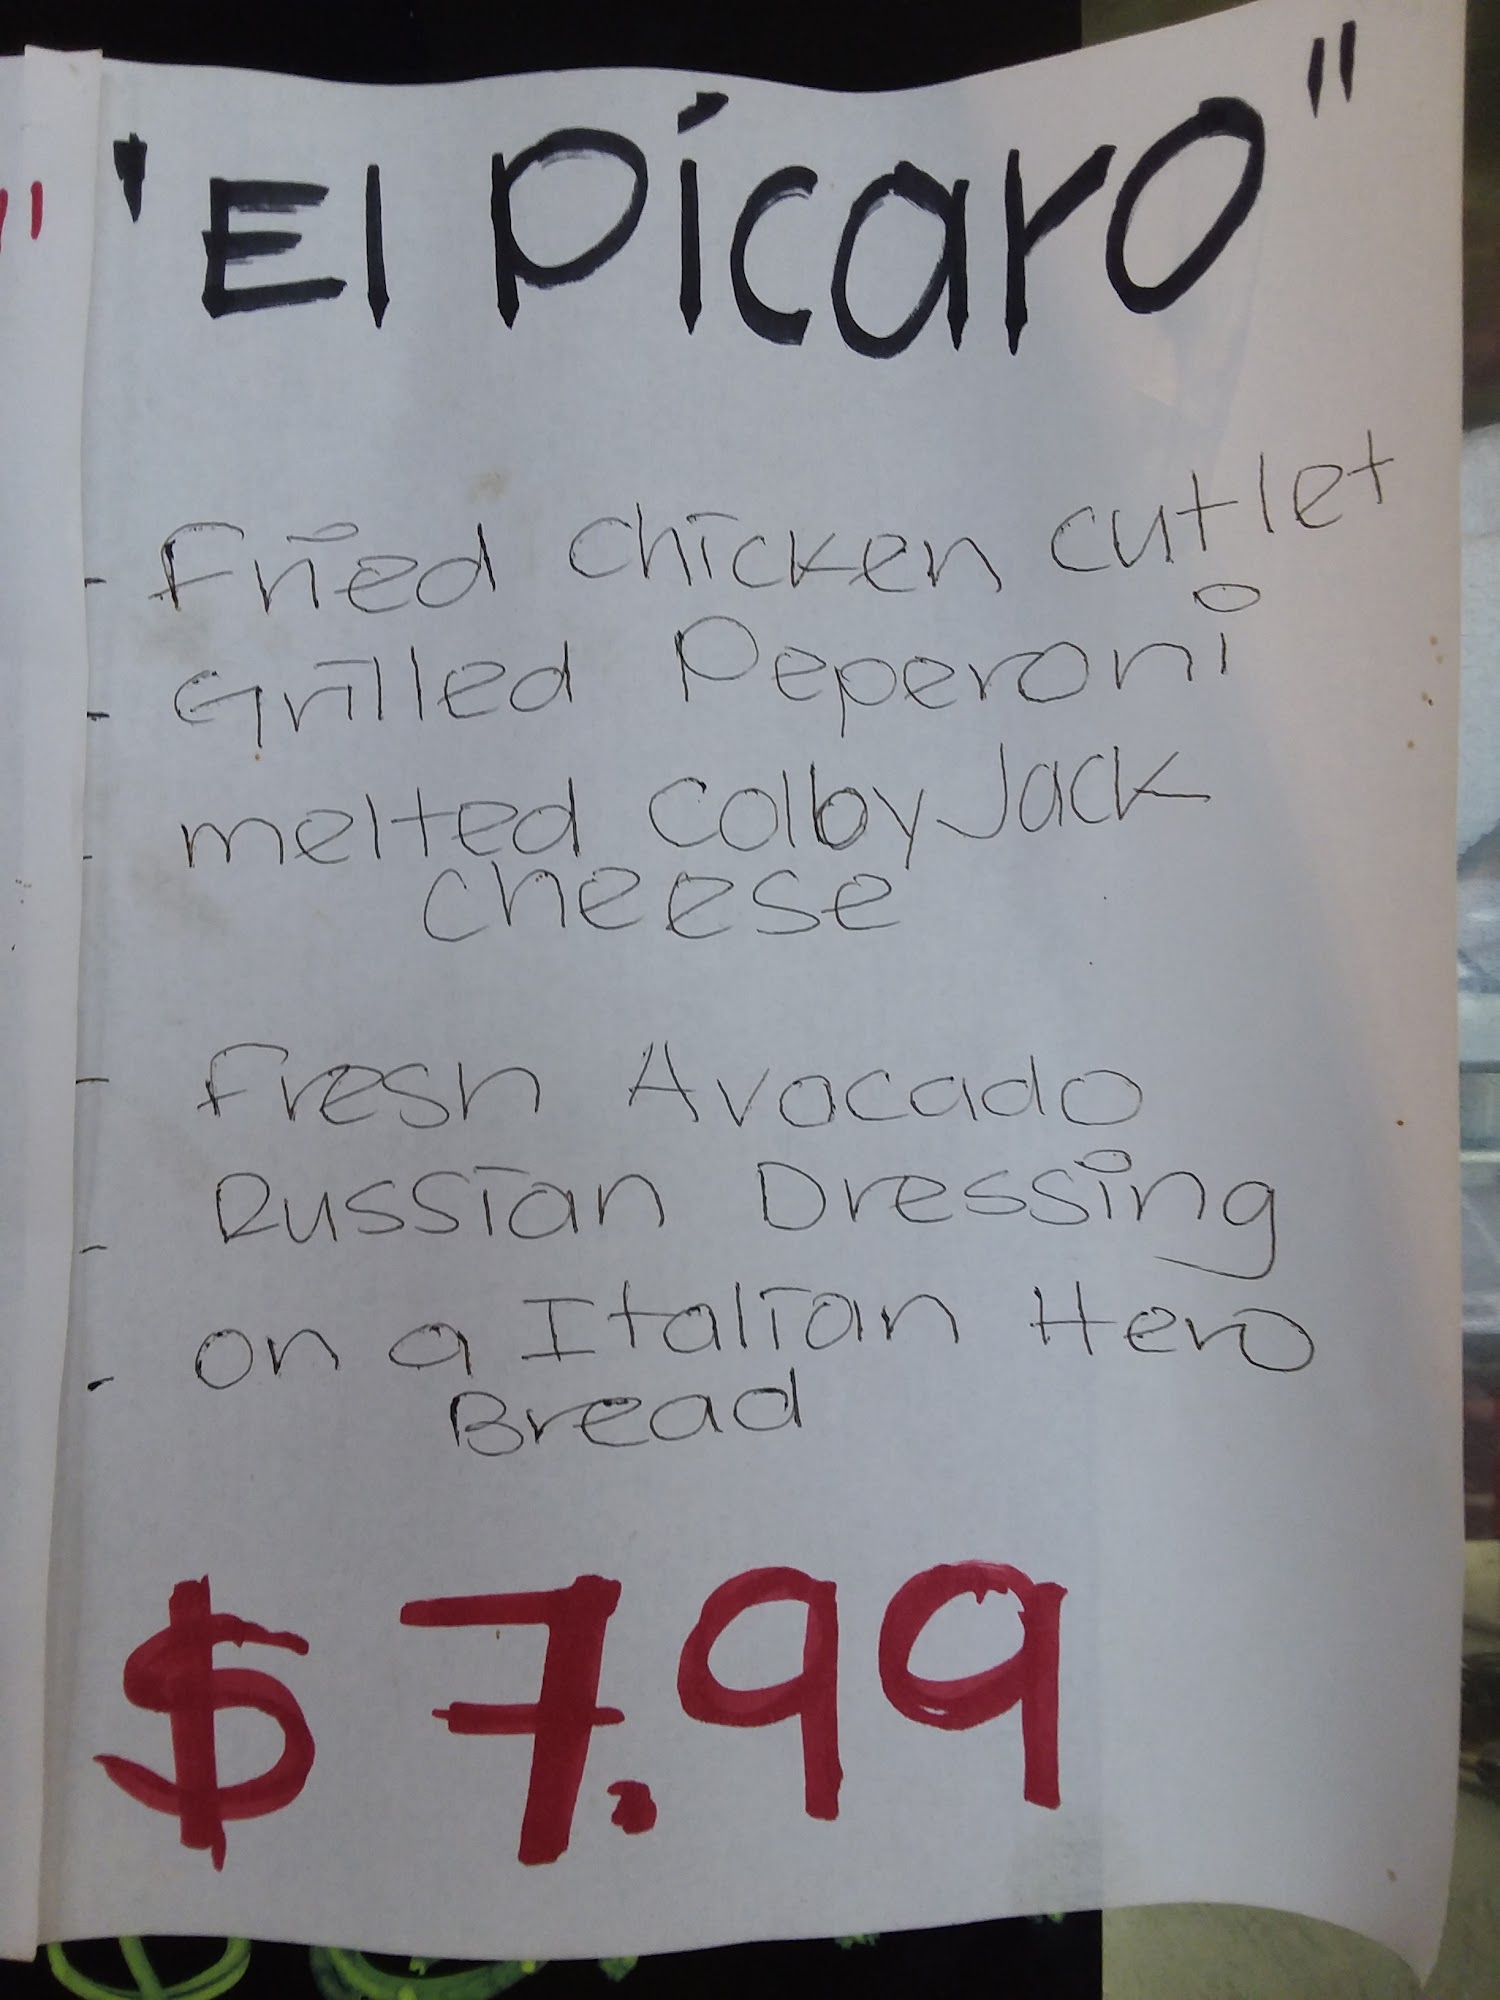 'El Pícaro"
- Fried chicken cutlet
- Grilled Peperoni
- melted Colby Jack
cheese
- Fresh Avocado
- Russian Dressing
- on a Italian Hero
Bread
$7.99